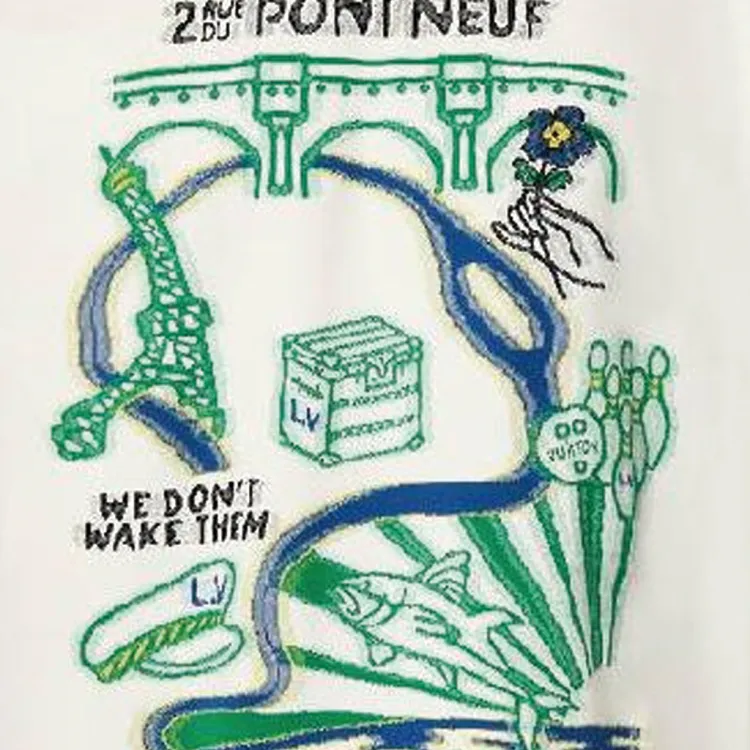 2 RUE DU PONT NEUF
L.V
VUITTON
WE DON'T
WAKE THEM
L.V